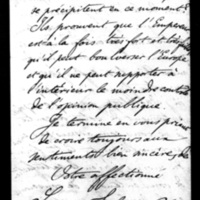 se précipitent en ce moment?
Ils prouvent que l'Empereur
est à la fois très fort et très
qu'il peut bouleverser l'Europe
et qu'il ne peut supporter à
l'intérieur le moindre contrôle
de l'opinion publique
Je termine en vous priant
de croire toujours aux
sentiments bien sincères de
Votre affectionné